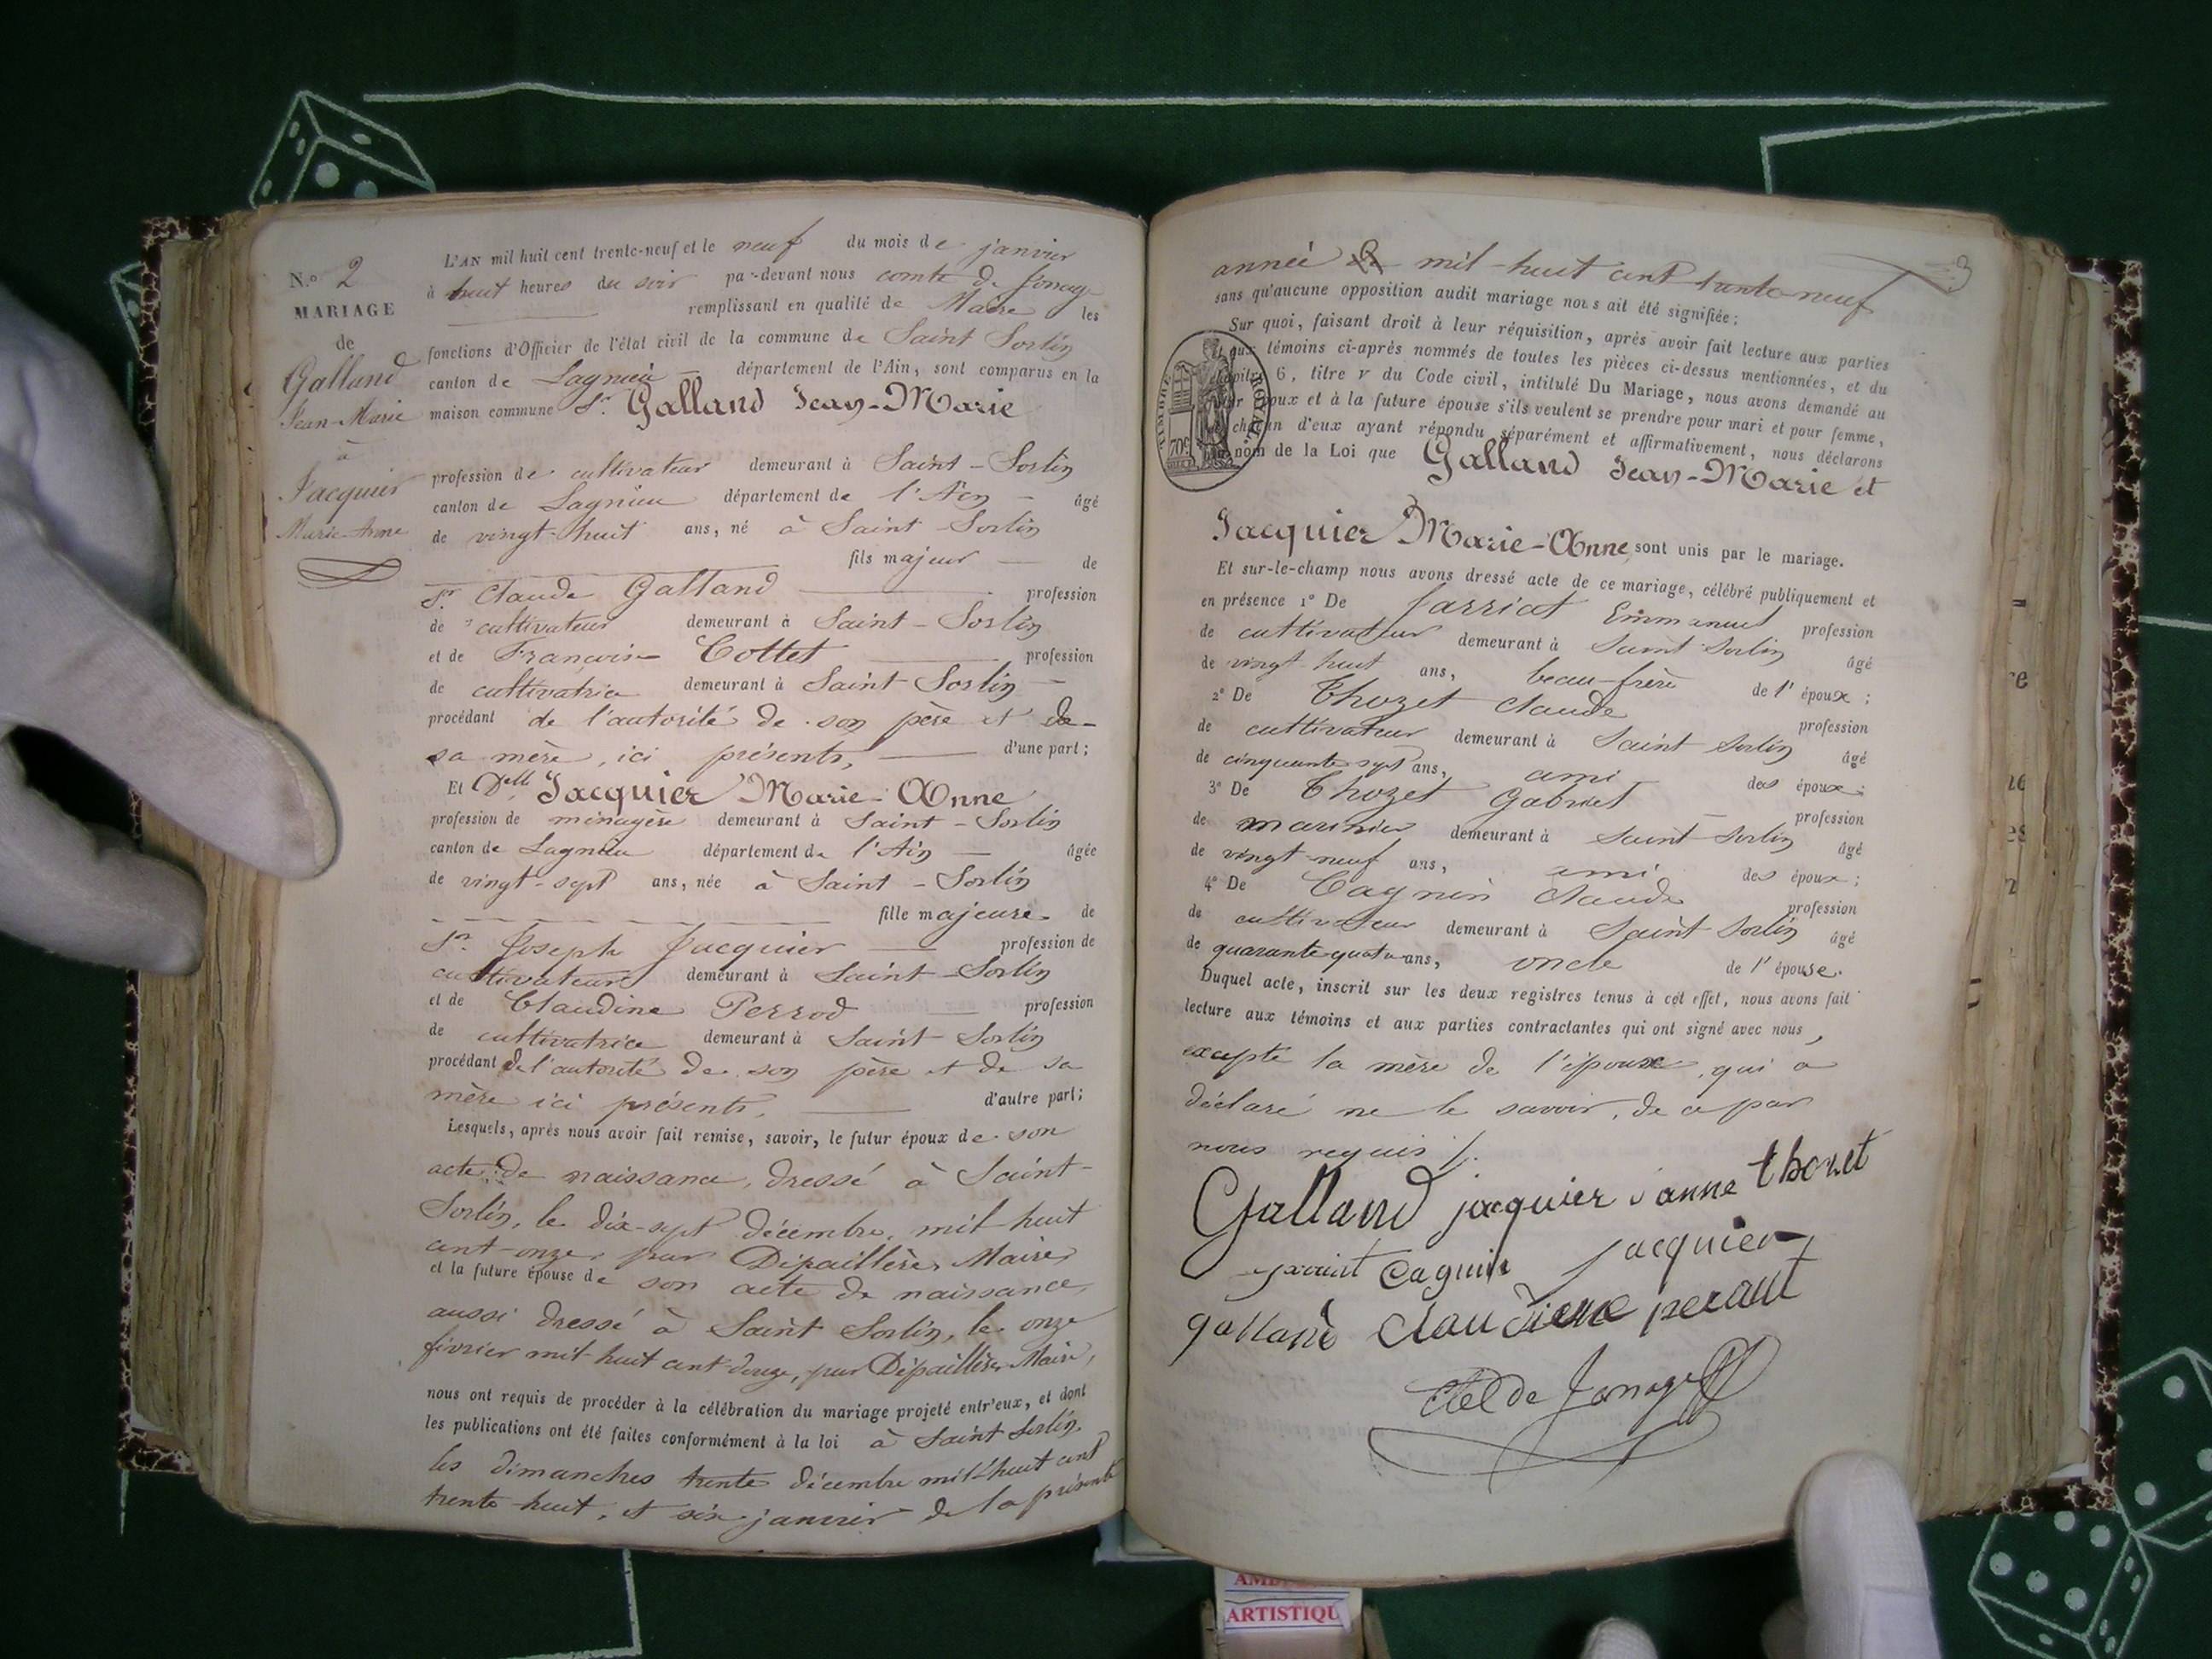 N.o 2
MARIAGE
de
Galland
Jean-Marie
à
Jacquier
Marie-Anne
L'AN mil huit cent trente-neuf et le neuf du mois de janvier
à huit heures du soir par-devant nous comte de Jonage
remplissant en qualité de Maire les
fonctions d'Officier de l'état civil de la commune de Saint Sorlin
canton de Lagnieu département de l'Ain, sont comparus en la
maison commune Sr. Galland Jean-Marie
profession de cultivateur demeurant à Saint-Sorlin
canton de Lagnieu département de l'Ain âgé
de vingt-huit ans, né à Saint-Sorlin
fils majeur de
Sr. Claude Galland profession
de cultivateur demeurant à Saint-Sorlin
et de Françoise Cottet profession
de cultivatrice demeurant à Saint-Sorlin
procédant de l'autorité de son père et de
sa mère, ici présents, d'une part;
Et Delle Jacquier Marie-Anne
profession de ménagère demeurant à Saint-Sorlin
canton de Lagnieu département de l'Ain âgée
de vingt-sept ans, née à Saint-Sorlin
fille majeure de
Sr. Joseph Jacquier profession de
cultivateur demeurant à Saint-Sorlin
et de Claudine Perrod profession
de cultivatrice demeurant à Saint-Sorlin
procédant de l'autorité de son père et de sa
mère ici présents, d'autre part;
Lesquels, après nous avoir fait remise, savoir, le futur époux de son
acte de naissance, dressé à Saint-
Sorlin, le dix-sept décembre, mil-huit
cent-onze, par Dépaillère, Maire,
et la future épouse de son acte de naissance,
aussi dressé à Saint Sorlin, le onze
février mil-huit cent douze, par Dépaillère, Maire,
nous ont requis de procéder à la célébration du mariage projeté entr'eux, et dont
les publications ont été faites conformément à la loi à Saint Sorlin,
les dimanches trente décembre mil-huit cent
trente-huit, et six janvier de la présente
année mil-huit cent trente-neuf
sans qu'aucune opposition audit mariage nous ait été signifiée;
Sur quoi, faisant droit à leur réquisition, après avoir fait lecture aux parties
et aux témoins ci-après nommés de toutes les pièces ci-dessus mentionnées, et du
chapitre 6, titre V du Code civil, intitulé Du Mariage, nous avons demandé au
époux et à la future épouse s'ils veulent se prendre pour mari et pour femme,
chacun d'eux ayant répondu séparément et affirmativement, nous déclarons
au nom de la Loi que Galland Jean-Marie et
TIMBRE ROYAL
70c.
Jacquier Marie-Anne sont unis par le mariage.
Et sur-le-champ nous avons dressé acte de ce mariage, célébré publiquement et
en présence 1° De Jarriat Emmanuel profession
de cultivateur demeurant à Saint Sorlin âgé
de vingt-huit ans, beau-frère de l'époux;
2° De Thozet Claude profession
de cultivateur demeurant à Saint Sorlin âgé
de cinquante sept ans, ami des époux;
3° De Thozet Gabriel profession
de marinier demeurant à Saint-Sorlin âgé
de vingt-neuf ans, ami des époux;
4° De Cagnin Claude profession
de cultivateur demeurant à Saint Sorlin âgé
de quarante quatre ans, oncle de l'épouse.
Duquel acte, inscrit sur les deux registres tenus à cet effet, nous avons fait
lecture aux témoins et aux parties contractantes qui ont signé avec nous,
excepté la mère de l'époux, qui a
déclaré ne le savoir, de ce par
nous requis
Galland jacquier anne thozet
Cagnin jacquier
galland Claudine peraud
Cte de Jonage
ARTISTIQU